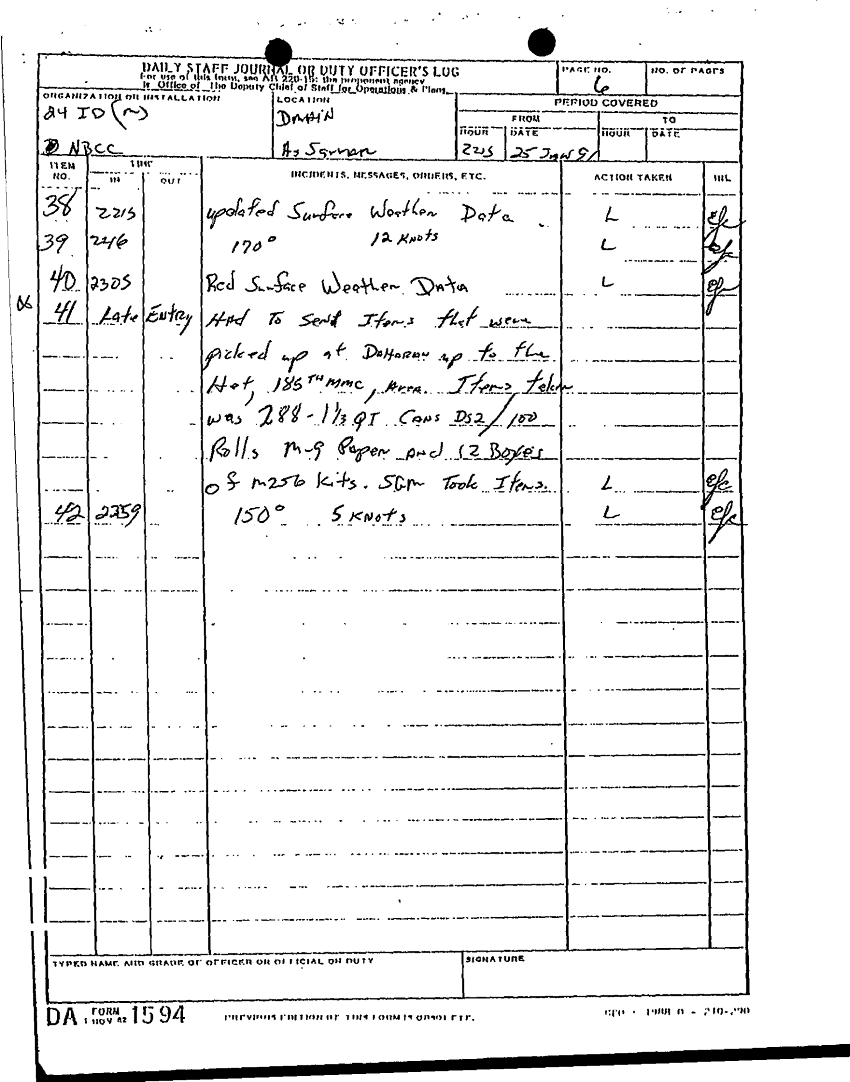 DAILY STAFF JOURNAL OR DUTY OFFICER'S LOG
For use of this form, see AR 220-15: the proponent agency
is Office of The Deputy Chief of Staff for Operations & Plans.
PAGE NO.
6
NO. OF PAGES
ORGANIZATION OR INSTALLATION
24 ID (M)
NBCC
LOCATION
DMAIN
As Sarman
PERIOD COVERED
FROM
TO
HOUR DATE HOUR DATE
2215 25 Jan 91
ITEM NO. TIME IN OUT INCIDENTS, MESSAGES, ORDERS, ETC. ACTION TAKEN INL
38 2215 updated Surface Weather Data L efc
39 2216 170° 12 Knots L efc
40 2305 Rcd Surface Weather Data L efc
06 41 Late Entry Had To Send Items that were
picked up at DAHARAN up to the
Het, 185TH MMC, Area. Items taken
was 288-1 1/3 QT Cans DS2/100
Rolls M-9 Paper and 12 Boxes
of M256 kits. SGM Took Items. L efc
42 2359 150° 5 Knots L efc
TYPED NAME AND GRADE OF OFFICER OR OFFICIAL ON DUTY
SIGNATURE
DA FORM 1 NOV 62 1594
PREVIOUS EDITION OF THIS FORM IS OBSOLETE.